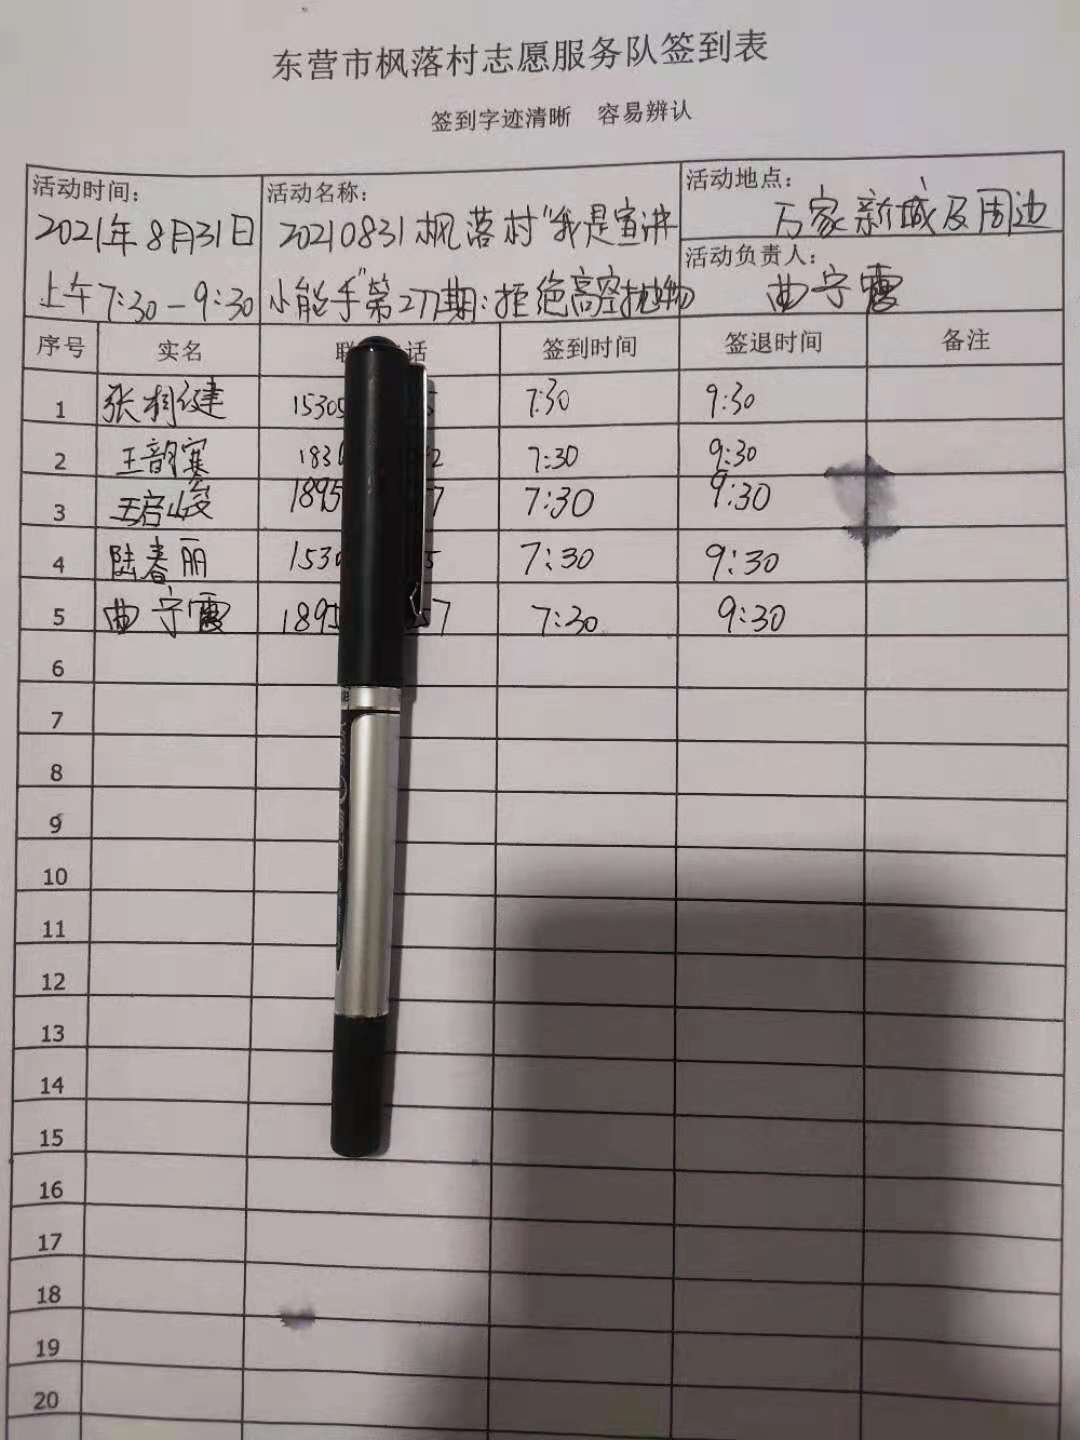 东营市枫落村志愿服务队签到表
签到字迹清晰 容易辨认
活动时间:
2021年8月31日
上午7:30-9:30
活动名称:
20210831枫落村"我是宣讲
小能手"第277期:拒绝高空抛物
活动地点:
万家新城及周边
活动负责人:
曲宁霞
序号 实名 联 话 签到时间 签退时间 备注
1 张相健 1530 5 7:30 9:30
2 王韵 183 2 7:30 9:30
3 王启峻 1895 7 7:30 9:30
4 陆春丽 153 5 7:30 9:30
5 曲宁霞 1895 57 7:30 9:30
6
7
8
9
10
11
12
13
14
15
16
17
18
19
20